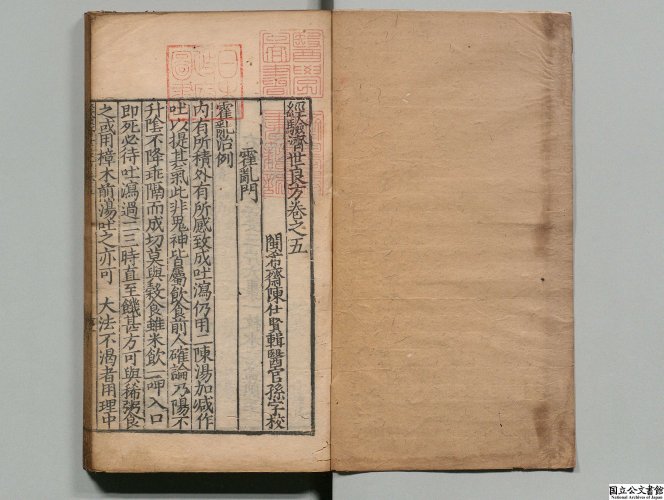 經驗濟世良方卷之五
閩希齋陳仕賢輯醫官孫宇校
霍亂門
霍亂治例
内有所積外有所感致成吐瀉仍用二陳湯加减作
吐以提其氣此非鬼神皆屬飲食前人確論乃陽不
升陰不降乖隔而成切莫與穀食雖米飲一呷入口
即死必待吐瀉過二三時直至饑甚方可與稀粥食
之或用樟木煎湯吐之亦可 大法不渴者用理中
国立公文書館
National Archives of Japan